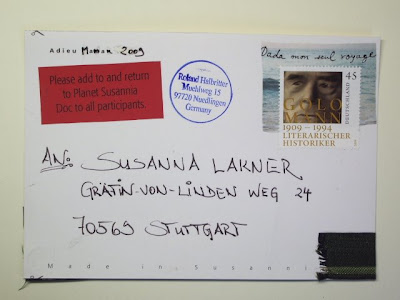 Adieu Maman 2009
Dada mon seul voyage
Please add to and return
to Planet Susannia
Doc to all participants.
Roland Halbritter
Muehlweg 15
97720 Nuedlingen
Germany
45
DEUTSCHLAND
GOLO
MANN
1909 – 1994
LITERARISCHER
HISTORIKER
1
AN: SUSANNA LAKNER
GRÄFIN-VON-LINDEN WEG 24
70569 STUTTGART
Made in Susanei